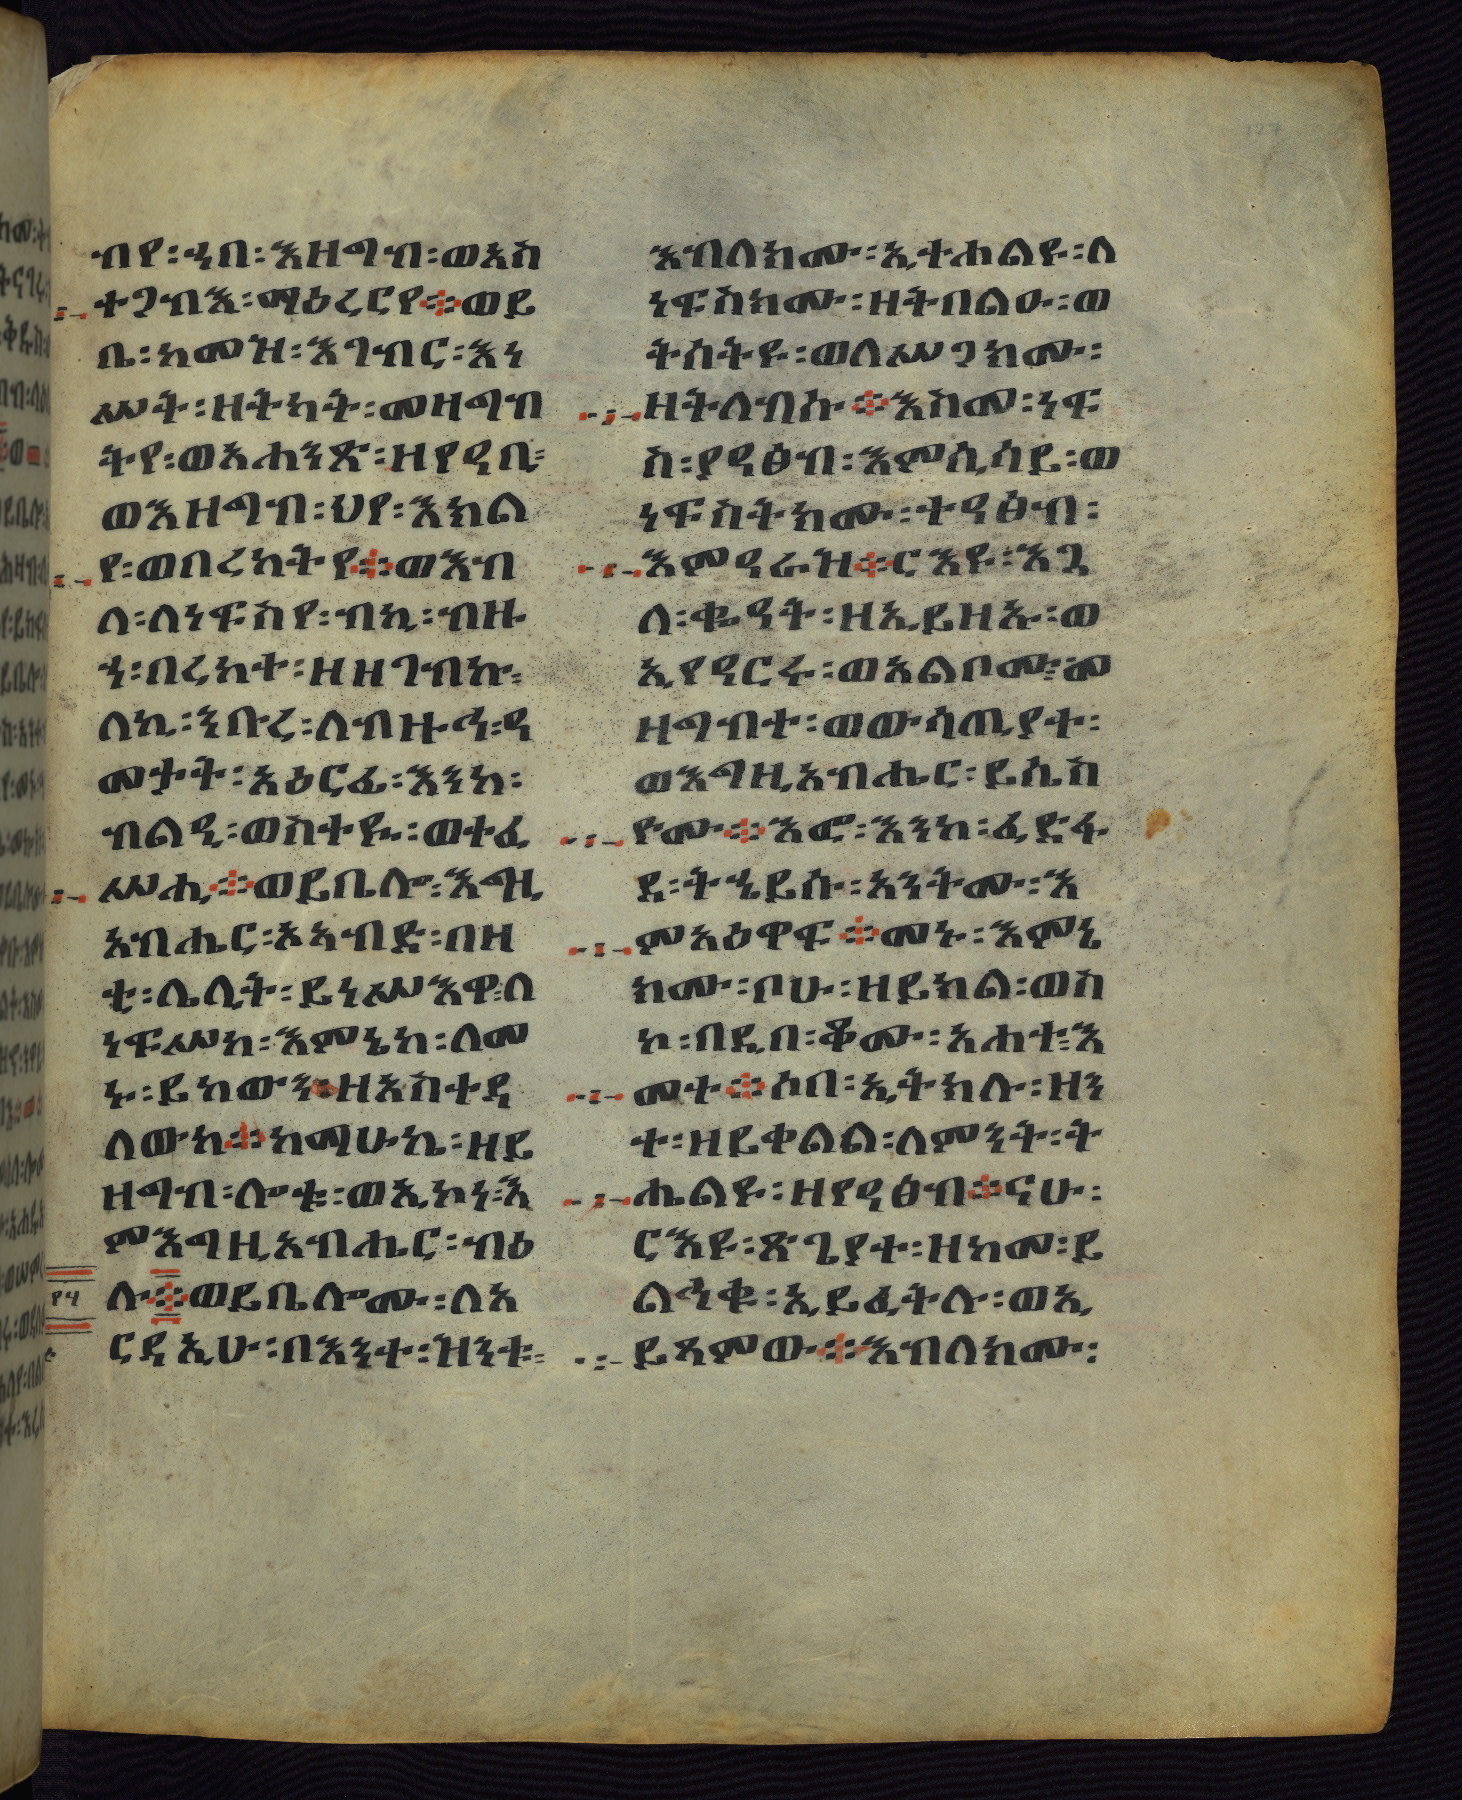 ብየ፡ ኀበ፡ እዘግብ፡ ወአስ
ተጋብእ፡ ማዕረርየ፨ ወይ
ቤ፡ ከመዝ፡ እገብር፡ እነ
ሥት፡ ዘትካት፡ መዛግብ
ትየ፡ ወአሐንጽ፡ ዘየዓቢ፡
ወእዘግብ፡ ህየ፡ እክል
የ፡ ወበረከትየ፨ ወእብ
ላ፡ ለነፍስየ፡ ብኪ፡ ብዙ
ኀ፡ በረከተ፡ ዘዘገብኩ፡
ለኪ፡ ንበረ፡ ለብዙኅ፡ ዓ
መታት፡ አዕርፊ፡ እንከ፡
ብልዒ፡ ወስተዪ፡ ወተፈ
ሥሒ፨ ወይቤሎ፡ እግዚ
አብሔር፡ ኦአብድ፡ በዛ
ቲ፡ ሌሊት፡ ይነሥእዋ፡ ለ
ነፍሥከ፡ እምኔከ፡ ለመ
ኑ፡ ይከውን፡ ዘአስተዳ
ለውከ፨ ከማሁኬ፡ ዘይ
ዘግብ፡ ሎቱ፡ ወኢኮነ፡ እ
ምእግዚአብሔር፡ ብዕ
ሉ፨ ወይቤሎሙ፡ ለአ
ርዳኢሁ፡ በእንተ፡ ዝንቱ፡
እብለክሙ፡ ኢተሐልዩ፡ ለ
ነፍስክሙ፡ ዘትበልዑ፡ ወ
ትስትዩ፡ ወለሥጋክሙ፡
ዘትለብሱ፨ እስመ፡ ነፍ
ስ፡ ያዓፅብ፡ እምሲሳይ፡ ወ
ነፍስትክሙ፡ ተዓፅብ፡
እምዓራዝ፨ ርእዩ፡ እጓ
ለ፡ ቋዓት፡ ዘኢይዘሩ፡ ወ
ኢየዓርሩ፡ ወአልቦሙ፡ መ
ዛግብተ፡ ወውሳጢያተ፡
ወእግዚአብሔር፡ ይሴስ
ዮሙ፨ እፎ፡ እንከ፡ ፈድፋ
ደ፡ ትኄይሱ፡ አንትሙ፡ እ
ምአዕዋፍ፨ መኑ፡ እምኔ
ክሙ፡ ቦሁ፡ ዘይክል፡ ወስ
ኮ፡ በዲበ፡ ቆሙ፡ አሐተ፡ እ
መተ፨ ሶበ፡ ኢትክሉ፡ ዘን
ተ፡ ዘይቀልል፡ ለምንት፡ ት
ሔልዩ፡ ዘየዓፅብ፨ ናሁ፡
ርእዩ፡ ጽጌያተ፡ ዘከመ፡ ይ
ልኅቁ፡ ኢይፈትሉ፡ ወኢ
ይጻምው፨ እብለክሙ፡